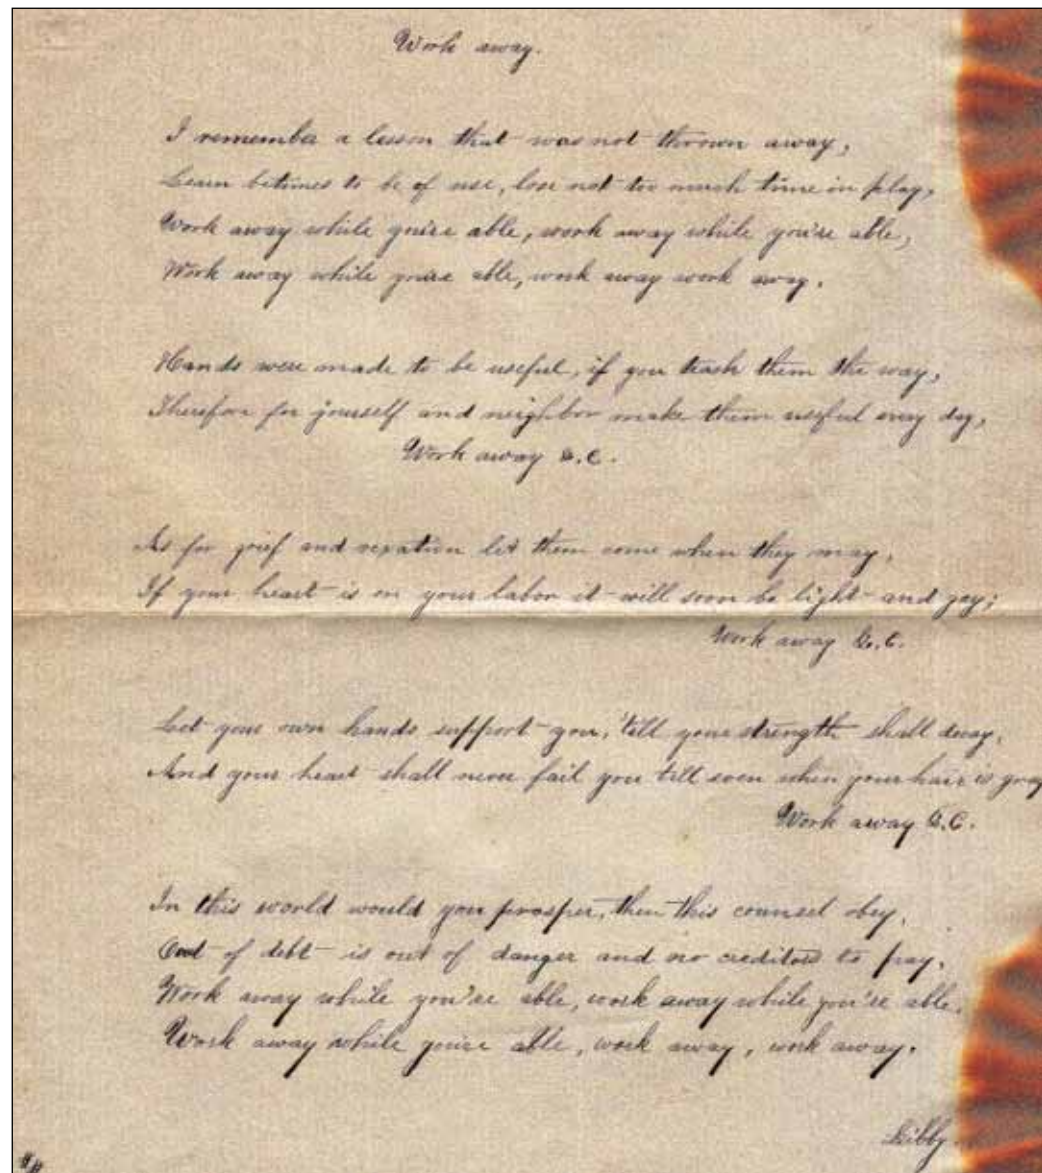 Work away.
I remember a lesson that was not thrown away,
Learn betimes to be of use, lose not too much time in play,
Work away while you're able, work away while you're able,
Work away while you're able, work away work away.
Hands were made to be useful, if you teach them the way,
Therefore for yourself and neighbor make them useful every day,
Work away &.C.
As for grief and vexation let them come when they may,
If your heart is in your labor it will soon be light and gay;
Work away &.C.
Let your own hands support you, 'till your strength shall decay,
And your heart shall never fail you till even when your hair is gray
Work away &.C.
In this world would you prosper, then this counsel obey,
Out of debt is out of danger and no creditors to pay,
Work away while you're able, work away while you're able,
Work away while you're able, work away, work away.
Libby.